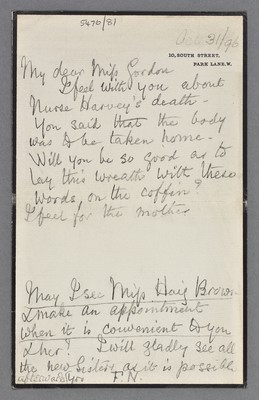 5470/81
Oct 31/96
10, SOUTH STREET,
PARK LANE, W.
My dear Miss Gordon
I feel with you about
Nurse Harvey's death -
You said that the body
was to be taken home -
Will you be so good as to
lay this wreath with these
words on the coffin?
I feel for the mother
May I see Miss Haig Brown
& make an appointment
when it is convenient to you
& her? I will gladly see all
the new Sisters as it is possible
afterwards
F. N.